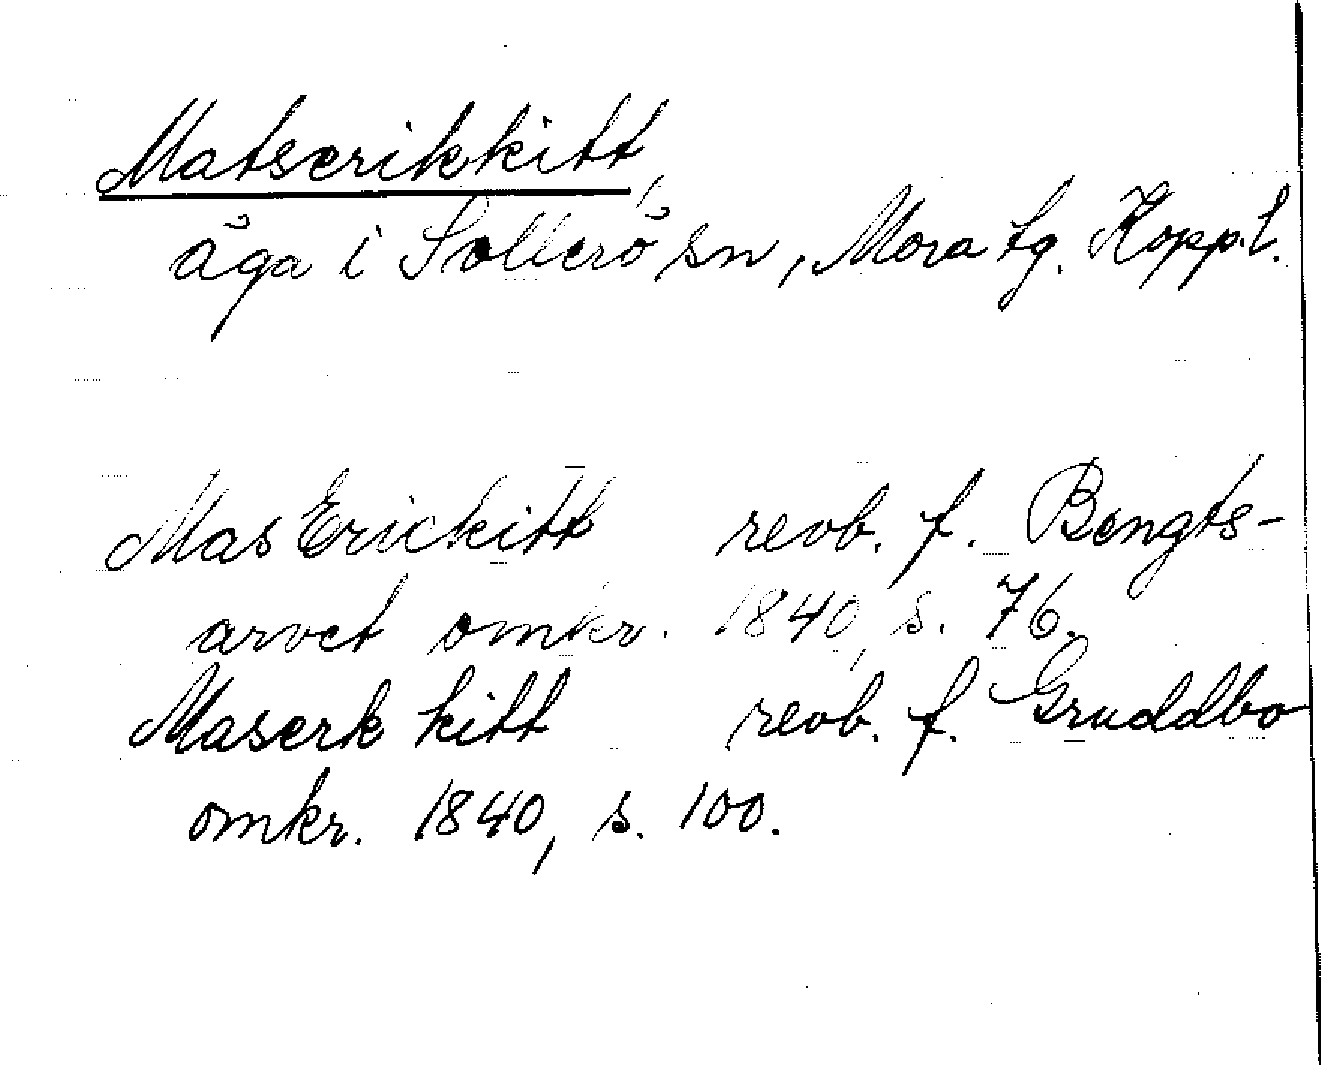 Matserikkitt,
äga i Sollerö sn, Mora tg. Kopp.l.
Mas Erickitt revb. f. Bengts-
arvet omkr. 1840, s. 76.
Maserk kitt revb. f. Gruddbo
omkr. 1840, s. 100.